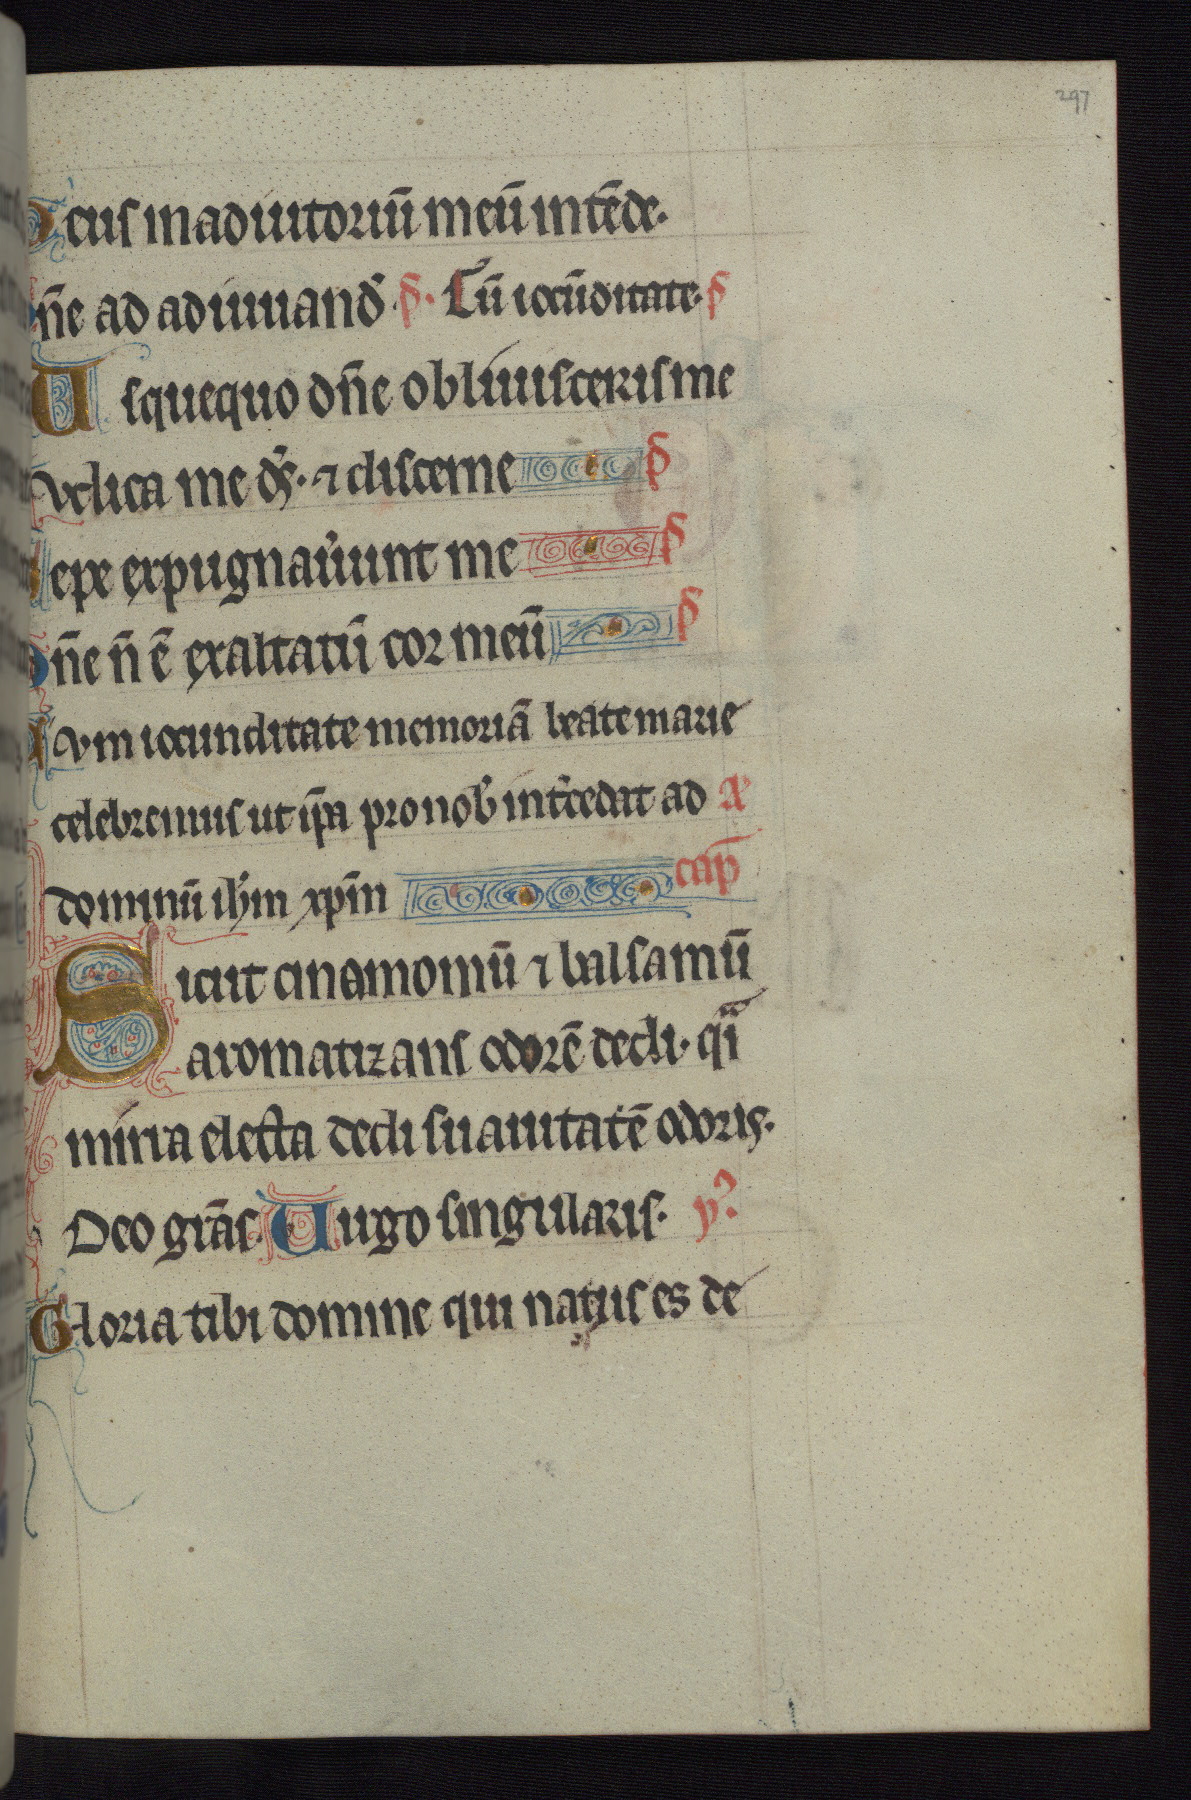 297
Deus in adiutoriū meū intēde.
Dn̄e ad adiuuand̄. p̄. Cū iocūditate. p̄
Usquequo dn̄e obliuisceris me
Iudica me ds̄. ⁊ discerne p̄
Sepe expugnauerunt me p̄
Dn̄e n̄ ē exaltatū cor meū p̄
Cum iocunditate memoriā beate marie
celebremus ut ip̄a pro nob̄ int̄cedat ad
dominū ih̄m xp̄m cap̄
Sicut cinamomū ⁊ balsamū
aromatizans odorē dedi. q̄i
mirra electa dedi suauitatē odoris.
Deo gr̄as. Uirgo singularis. y
Gloria tibi domine qui natus es de